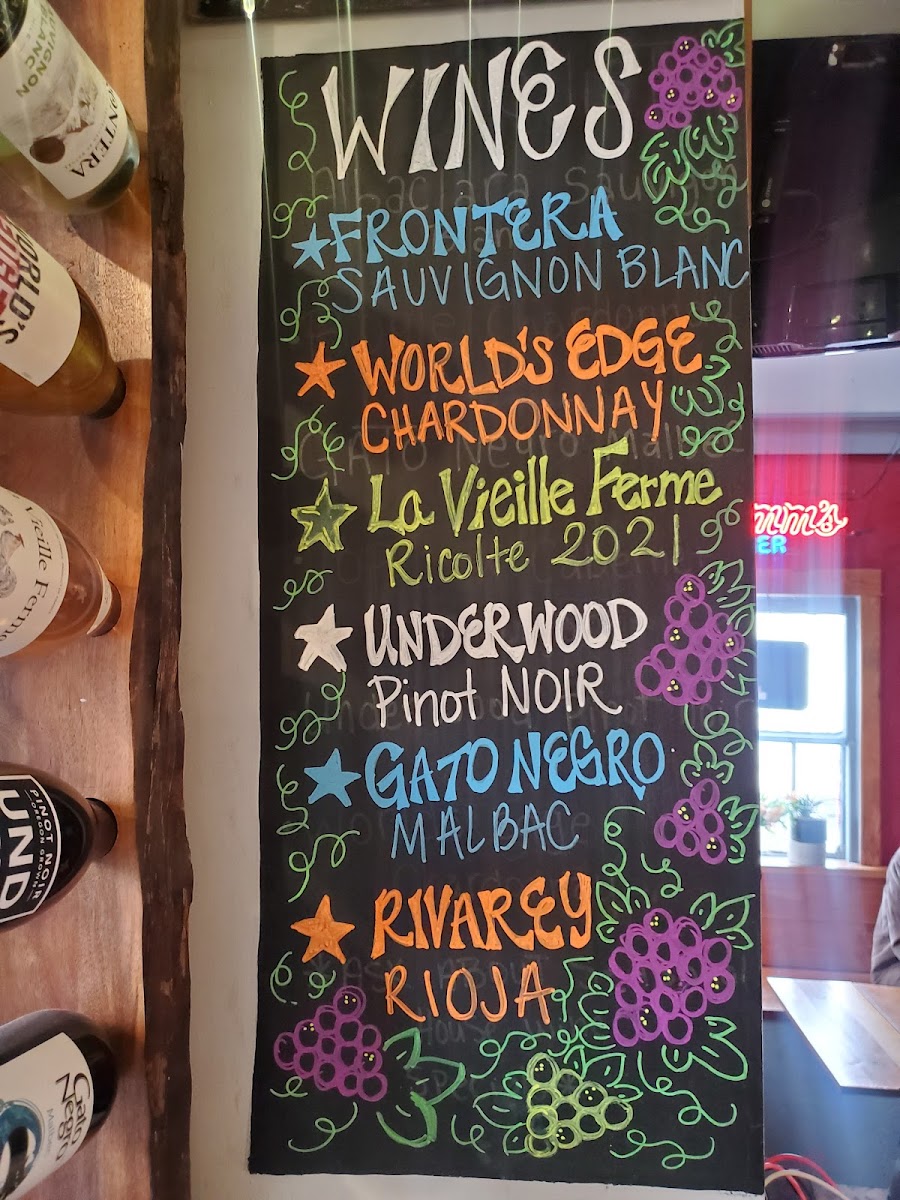 WINES
FRONTERA
SAUVIGNON BLANC
WORLD'S EDGE
CHARDONNAY
La Vieille Ferme
Ricolte 2021
UNDERWOOD
Pinot NOIR
GATO NEGRO
MALBAC
RIVAREY
RIOJA
SAUVIGNON
BLANC
FRONTERA
WORLD'S
Vieille Ferme
PINOT NOIR
OREGON GROWN
UND
Gato
Negro